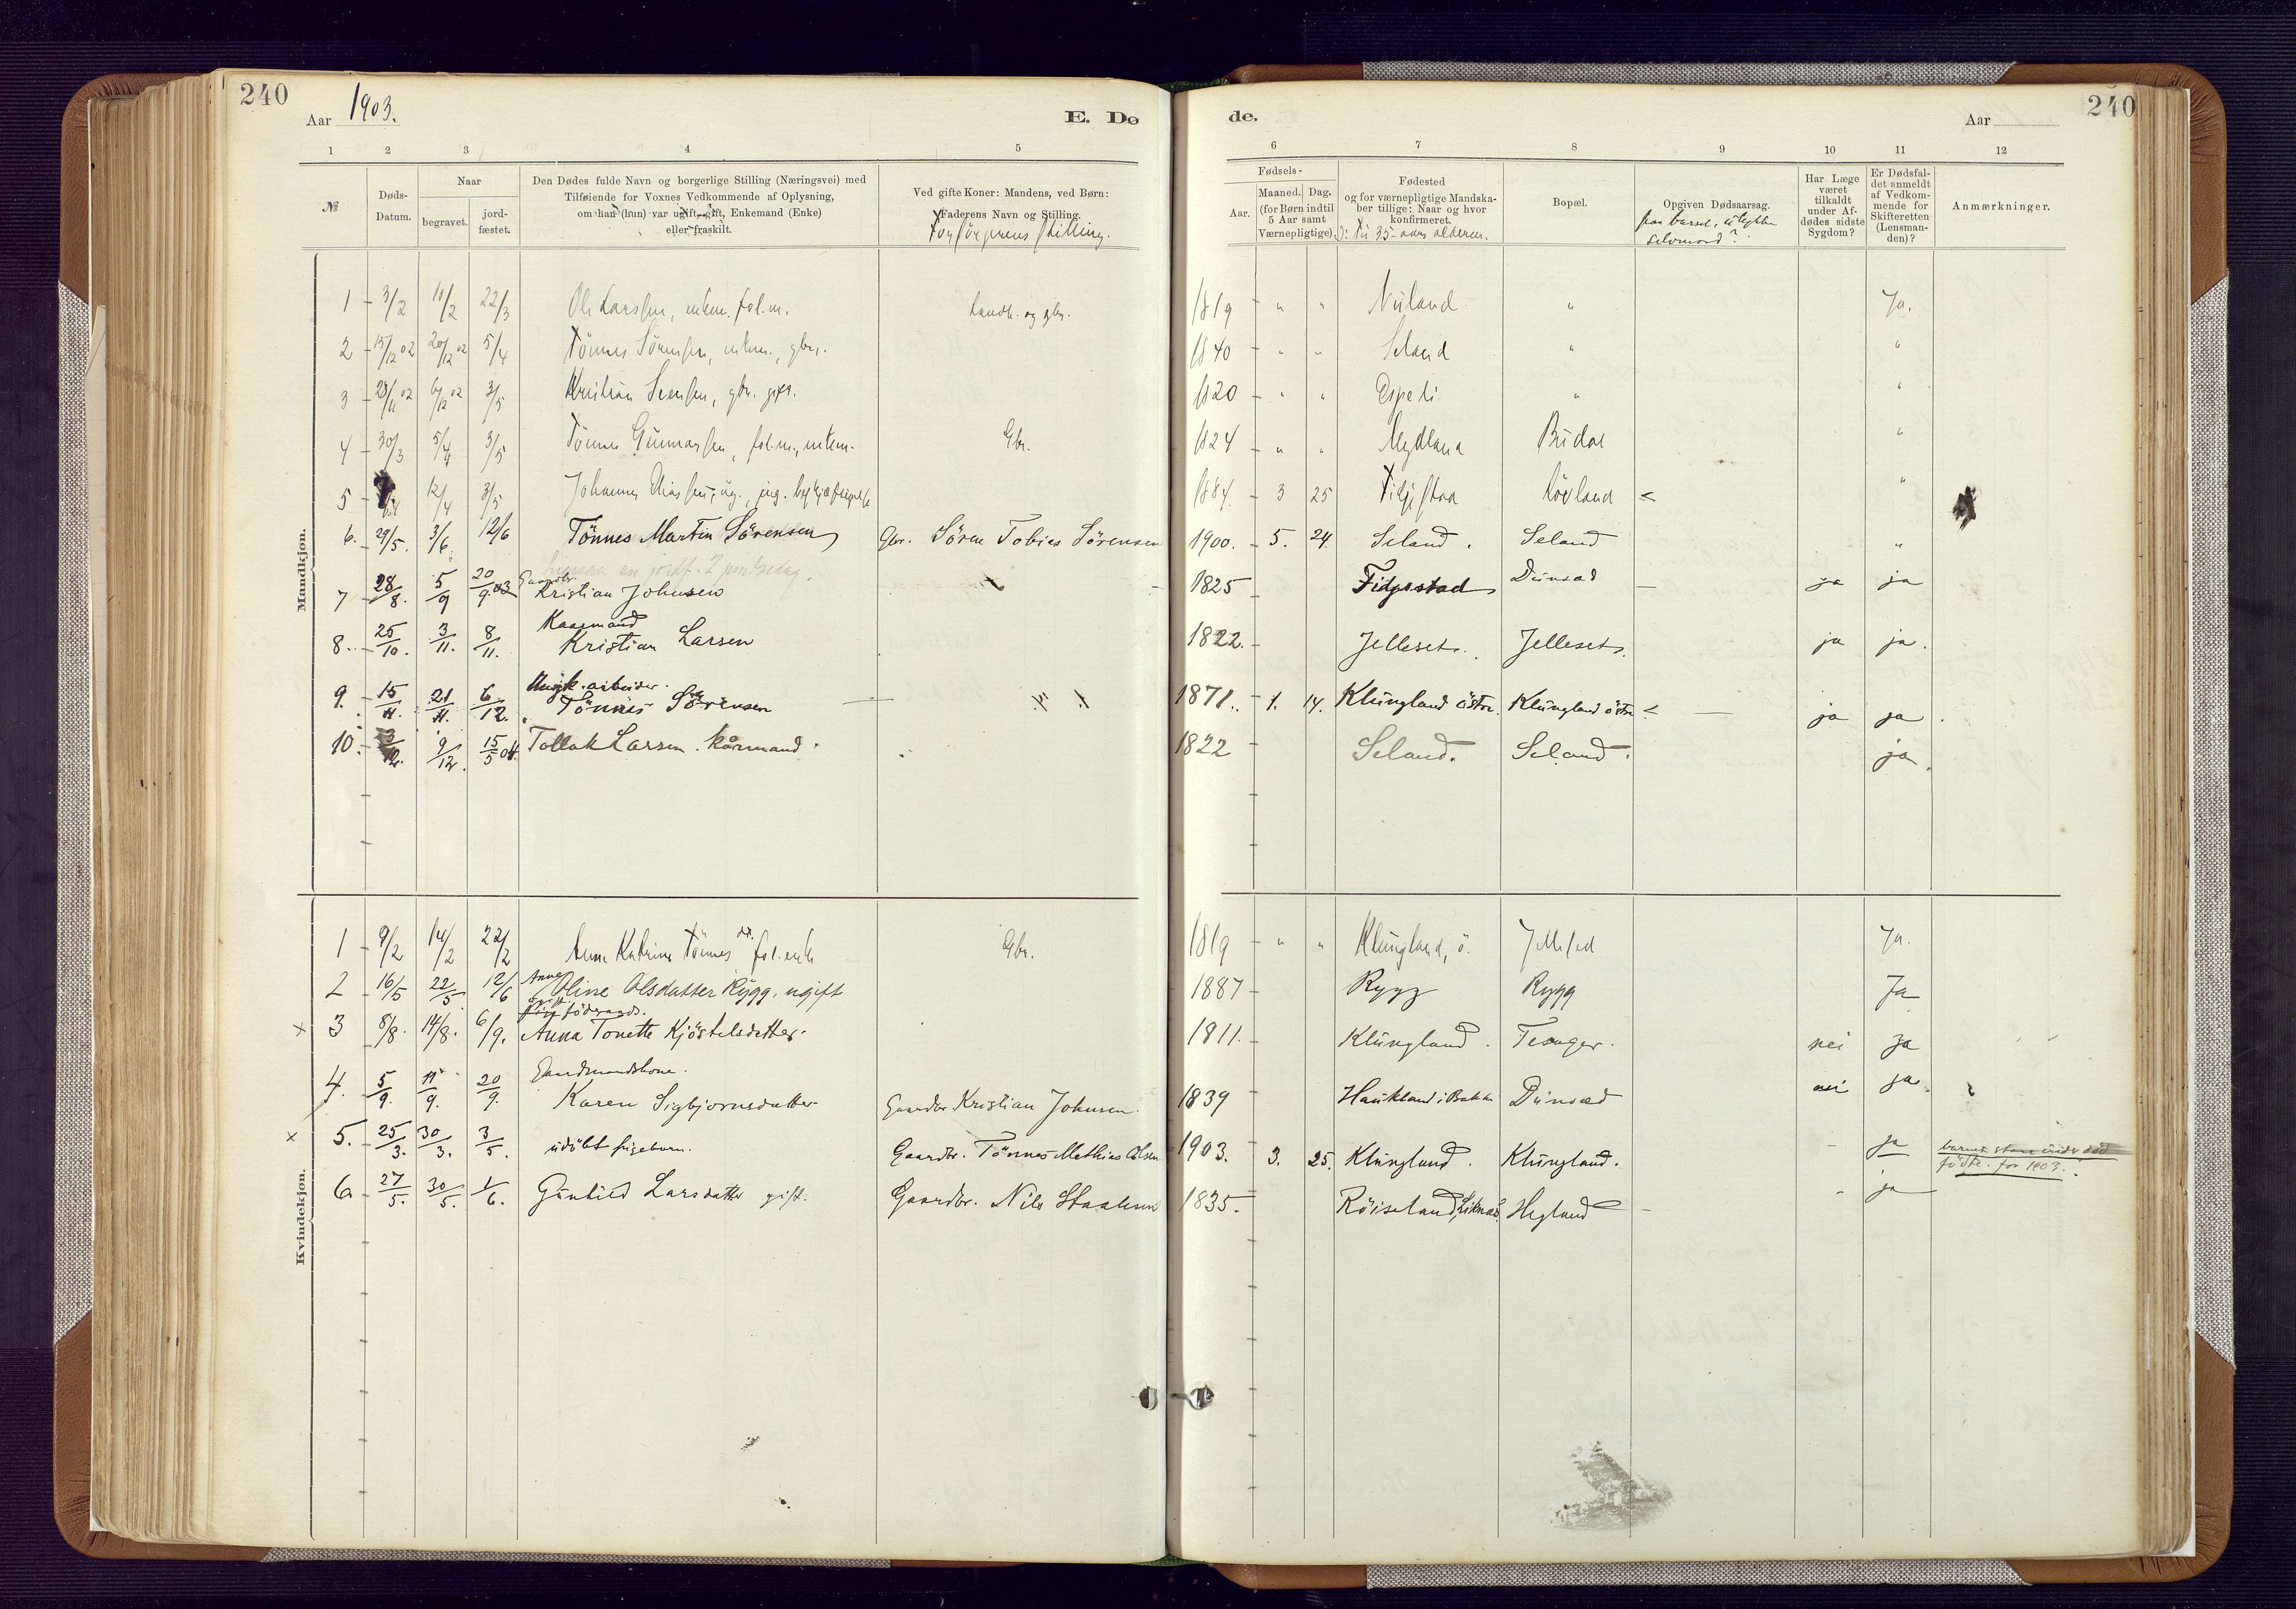 240
Aar 1903.
E. Dø
1 2 3 4 5
№
Døds-
Datum.
Naar
begravet.
jord-
fæstet.
Den Dødes fulde Navn og borgerlige Stilling (Næringsvei) med
Tilføiende for Voxnes Vedkommende af Oplysning,
om han (hun) var ugift, gift, Enkemand (Enke)
eller fraskilt.
Ved gifte Koner: Mandens, ved Børn:
Faderens Navn og Stilling.
Forsørgerens stilling.
Mandkjøn.
1 3/2 10/2 22/3 Ole Larssen, enkem. fol.m. Landh. og gbr.
2 15/12 02 20/12 02 5/4 Tönnes Sörensen, enkem., gbr.
3 28/11 02 6/12 02 3/5 Kristian Svensen, gbr. gift.
4 30/3 5/4 3/5 Tönnes Gunnarssen, fol.m., enkem. Gbr.
5 12/4 3/5 Johannes ug., ing. beskjæftigelse
6. 29/5. 3/6. 12/6 Tönnes Martin Sörensen Gbr. Sören Tobias Sörensen
Gaardbr.
7 28/8. 5/9 20/9.03 Kristian Johnsen
Kaarmand
8. 25/10. 3/11. 8/11. Kristian Larsen
arbeider.
9. 15/11. 21/11. 6/12. Tönnes Sörensen
10. 3/12. 9/12. 15/5 04. Tollak Larsen. kårmand.
Kvindekjøn.
1 9/2 14/2 22/2 Anna Katrine Tönnesdt. fol.enke Gbr.
2 16/5 22/5 12/6 Anne Oline Olsdatter Rygg, ugift
föderaads.
x 3 8/8. 14/8. 6/9. Anna Tonette Kjöstelsdatter.
Gaardmandskone.
4. 5/9. 11/9. 20/9. Karen Sigbjornsdatter Gaardbr Kristian Johnsen.
x 5. 25/3. 30/3. 3/5. udöbt pigebarn. Gaardbr. Tönnes Mathias Olsen
6 27/5. 30/5. 1/6. Gunhild Larsdatter gift. Gaardbr. Nils Staalesen
de.
Aar
240
6 7 8 9 10 11 12
Fødsels-
Aar.
Maaned. Dag.
(for Børn indtil
5 Aar samt
Værnepligtige).
Fødested
og for værnepligtige Mandska-
ber tillige: Naar og hvor
konfirmeret.
ɔ: til 35-aars alderen.
Bopæl.
Opgiven Dødsaarsag.
paa barsel, ulykke
selvmord?
Har Læge
været
tilkaldt
under Af-
dødes sidste
Sygdom?
Er Dødsfal-
det anmeldt
af Vedkom-
mende for
Skifteretten
(Lensman-
den)?
Anmærkninger.
1819 " " Nuland " Ja.
1840 " " Seland " "
1820 " " Espeli " "
1824 " " Mydland Budal "
1884. 3 25 Fidjestad Lövland "
1900. 5. 24. Seland. Seland "
1825 Fidgestad Dunsæd — ja ja
1822. Jelleset. Jelleset. ja ja.
1871. 1. 14. Klungland östre. Klungland östre — ja ja
1822 Seland. Seland. ja.
1819 " " Klungland, ö. Jelleset Ja.
1887 Rygg Rygg Ja
1811. Klungland. Tesager. nei ja
1839 Haukland i Bakke Dunsæd nei ja.
1903. 3. 25. Klungland. Klungland. ja barnet staar død
födte. for 1903.
1835. Röiseland, Liknæs. Hegland - ja